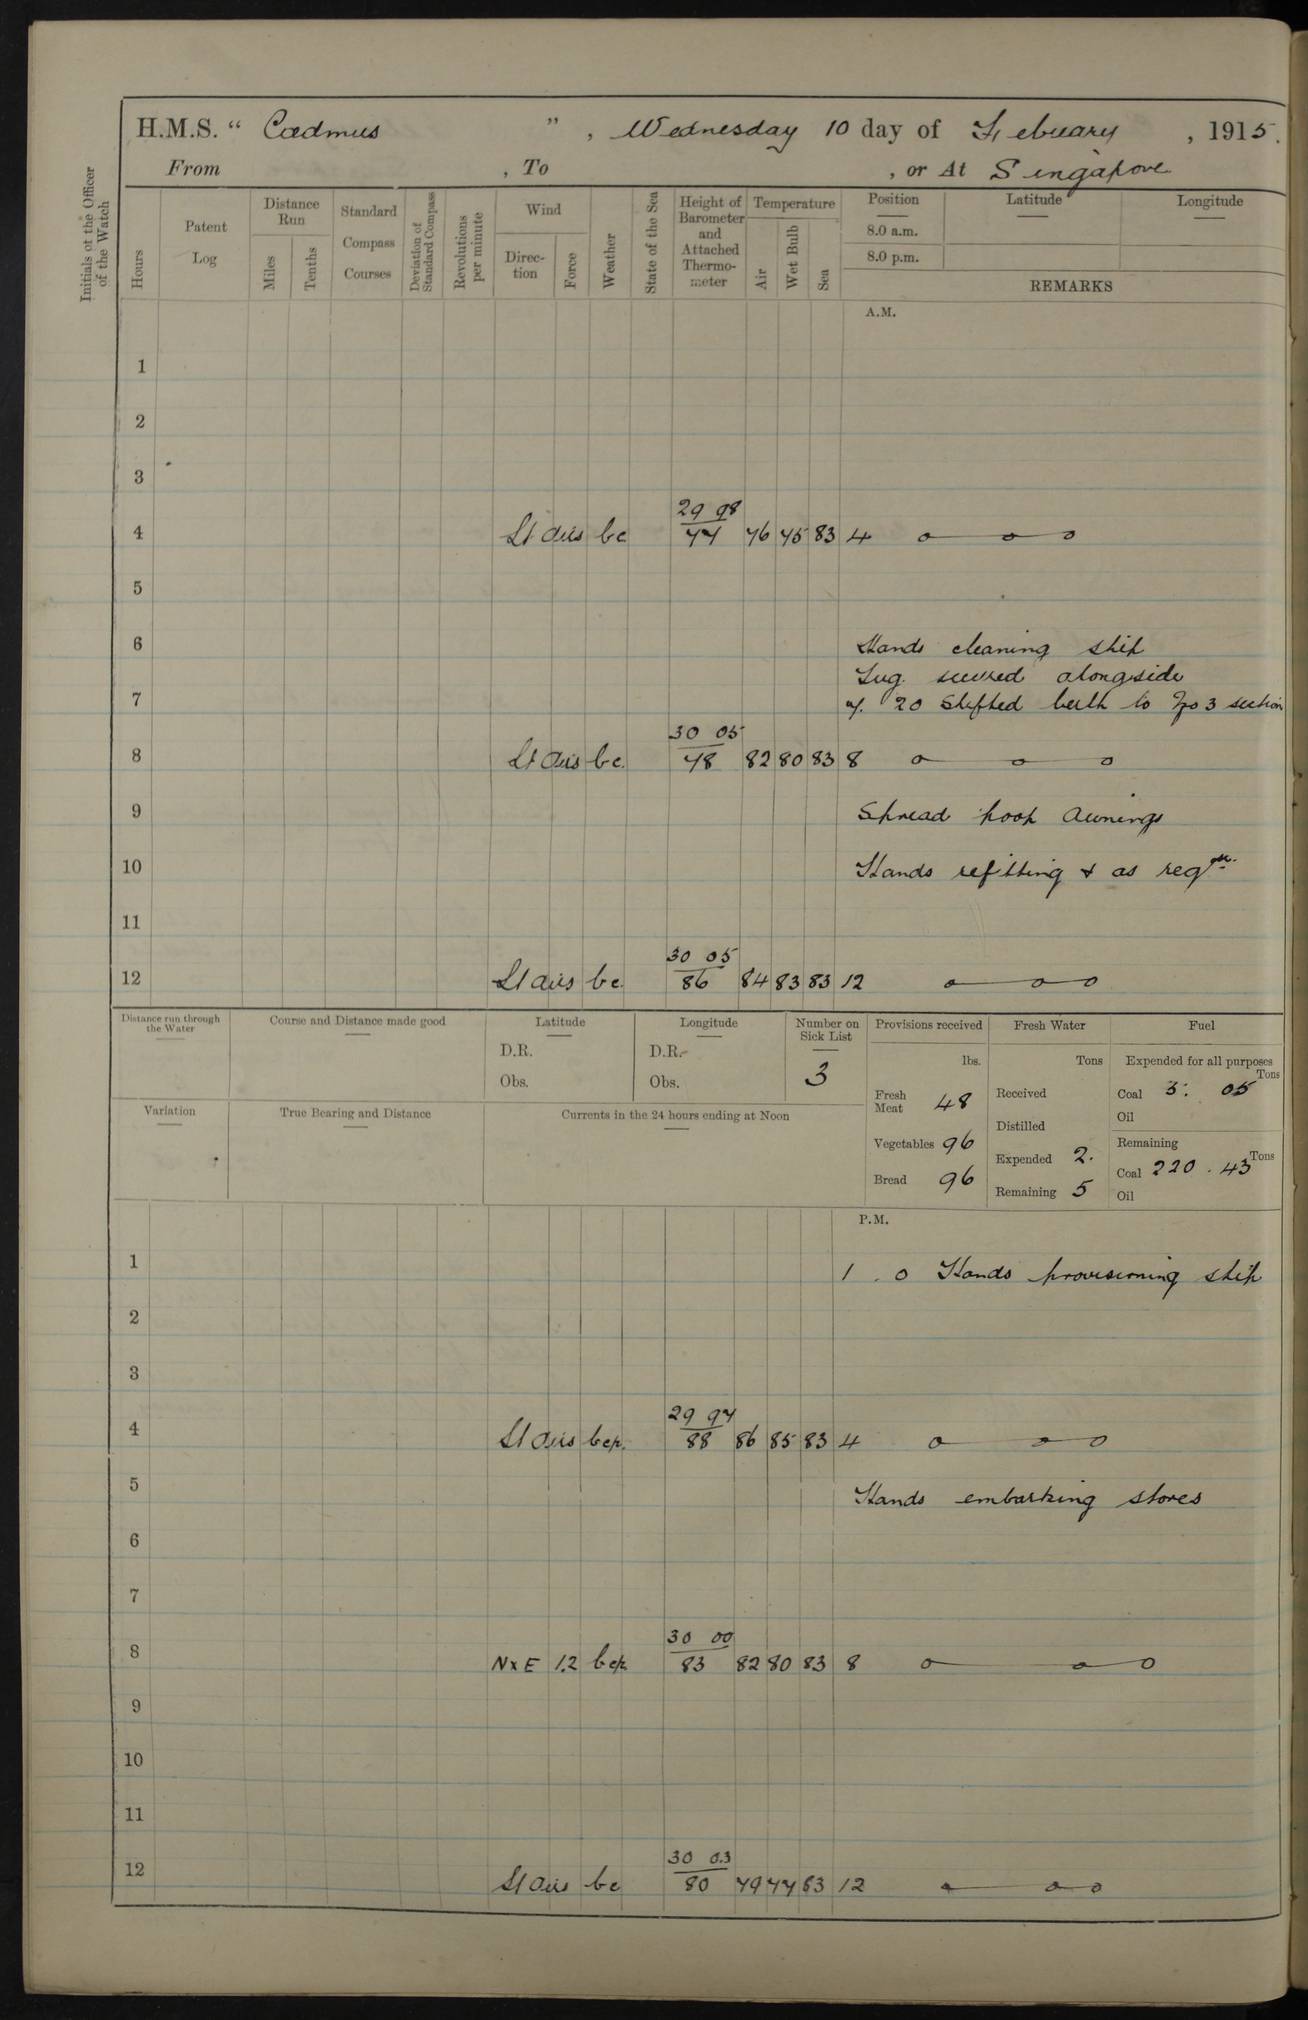 H.M.S. “ Cadmus ” , Wednesday 10 day of Febuary , 1915.
From , To , or At Singapore
Initials of the Officer of the Watch
Hours
Patent Log
Distance Run
Miles
Tenths
Standard Compass Courses
Deviation of Standard Compass
Revolutions per minute
Wind
Direction
Force
Weather
State of the Sea
Height of Barometer and Attached Thermometer
Temperature
Air
Wet Bulb
Sea
Position
8.0 a.m.
8.0 p.m.
Latitude
Longitude
REMARKS
A.M.
1
2
3
29 98
4 Lt airs bc 77 76 75 83 4 o o o
5
6 Hands cleaning ship
Tug secured alongside
7 7. 20 Shifted berth to No 3 section
30 05
8 Lt airs bc. 78 82 80 83 8 o o o
9 Spread poop awnings
10 Hands refitting & as reqd.
11
30 05
12 Lt airs bc. 86 84 83 83 12 o o o
Distance run through the Water
Course and Distance made good
Latitude
D.R.
Obs.
Longitude
D.R.
Obs.
Number on Sick List
3
Provisions received
lbs.
Fresh Meat 48
Vegetables 96
Bread 96
Fresh Water
Tons
Received
Distilled
Expended 2.
Remaining 5
Fuel
Expended for all purposes
Tons
Coal 3. 05
Oil
Remaining
Tons
Coal 220 . 43
Oil
Variation
True Bearing and Distance
Currents in the 24 hours ending at Noon
P.M.
1 1 . 0 Hands provisioning ship
2
3
29 97
4 Lt airs bcp. 88 86 85 83 4 o o o
5 Hands embarking stores
6
7
30 00
8 N x E 1.2 bcp 83 82 80 83 8 o o o
9
10
11
30 03
12 Lt airs bc 80 79 77 83 12 o o o